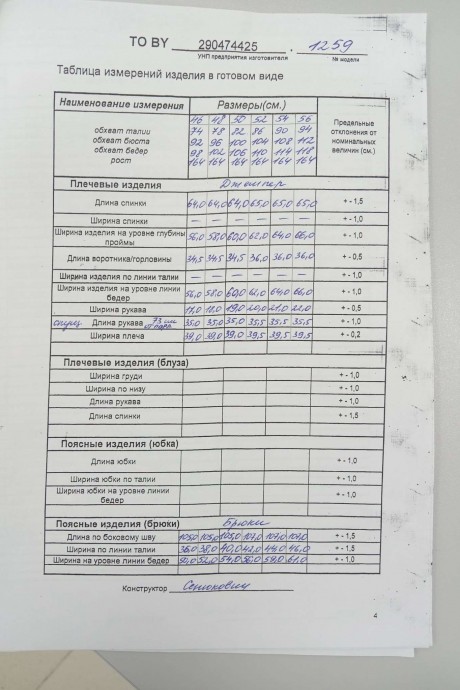 TO BY 290474425 . 1259
УНП предприятия изготовителя № модели
Таблица измерений изделия в готовом виде
Наименование измерения Размеры(см.) Предельные отклонения от номинальных величин (см.)
46 48 50 52 54 56
обхват талии 74 78 82 86 90 94
обхват бюста 92 96 100 104 108 112
обхват бедер 98 102 106 110 114 118
рост 164 164 164 164 164 164
Плечевые изделия Джемпер
Длина спинки 64,0 64,0 64,0 65,0 65,0 65,0 + - 1,5
Ширина спинки – – – – – – + - 1,0
Ширина изделия на уровне глубины проймы 56,0 58,0 60,0 62,0 64,0 66,0 + - 1,0
Длина воротника/горловины 34,5 34,5 34,5 36,0 36,0 36,0 + - 0,5
Ширина изделия по линии талии – – – – – – + - 1,0
Ширина изделия на уровне линии бедер 56,0 58,0 60,0 62,0 64,0 66,0 + - 1,0
Ширина рукава 17,0 18,0 19,0 20,0 21,0 22,0 + - 0,5
Длина рукава 35,0 35,0 35,0 35,5 35,5 35,5 + - 1,0
Ширина плеча 39,0 39,0 39,0 39,5 39,5 39,5 + - 0,2
Плечевые изделия (блуза)
Ширина груди + - 1,0
Ширина по низу + - 1,0
Длина рукава + - 1,0
Длина спинки + - 1,5
Поясные изделия (юбка)
Длина юбки + - 1,0
Ширина юбки по талии + - 1,0
Ширина юбки на уровне линии бедер + - 1,0
Поясные изделия (брюки) Брюки
Длина по боковому шву 105,0 105,0 105,0 107,0 107,0 107,0 + - 1,5
Ширина по линии талии 36,0 38,0 40,0 42,0 44,0 46,0 + - 1,5
Ширина на уровне линии бедер 50,0 52,0 54,0 56,0 59,0 61,0 + - 1,0
Конструктор
4